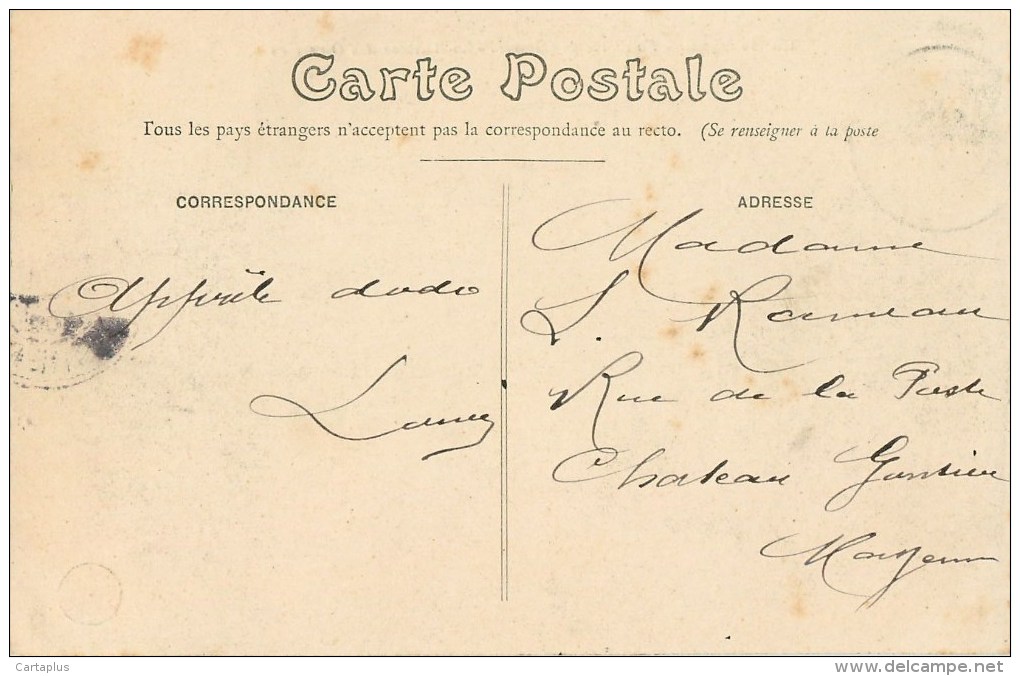 Carte Postale
Tous les pays étrangers n'acceptent pas la correspondance au recto. (Se renseigner à la poste
CORRESPONDANCE
dodo
ADRESSE
Madame
L. Rameau
Rue de la Poste
Chateau Gontier
Mayenne
Cartaplus
www.delcampe.net